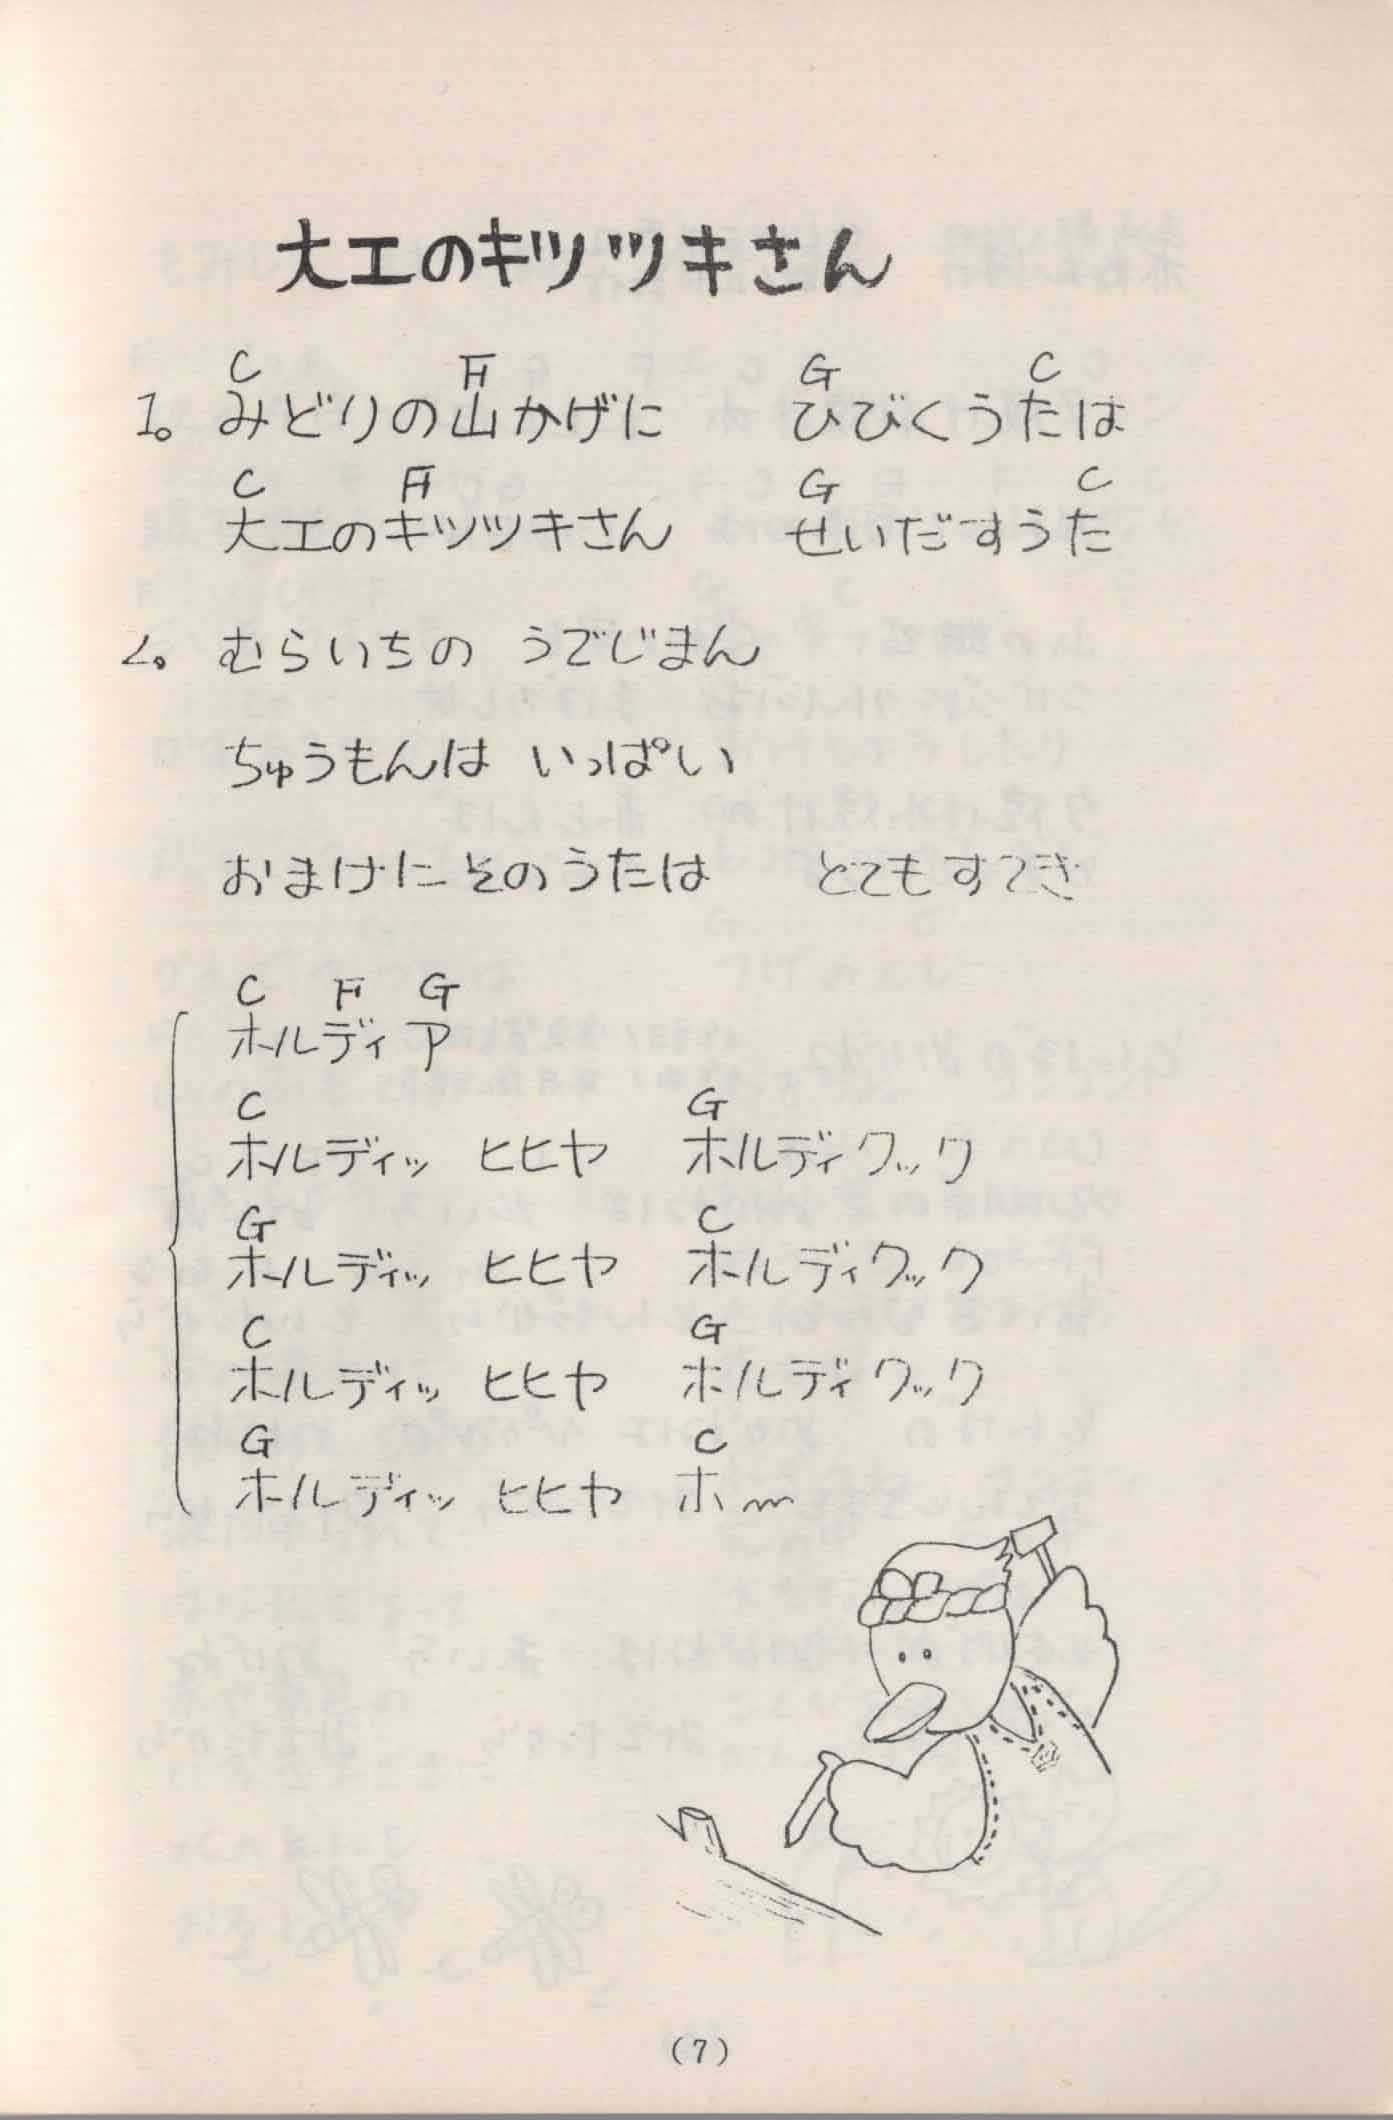 大工のキツツキさん
C F G C
1。みどりの山かげに ひびくうたは
C F G C
大工のキツツキさん せいだすうた
2。むらいちの うでじまん
ちゅうもんは いっぱい
おまけにそのうたは とてもすてき
C F G
ホルディア
C G
ホルディッ ヒヒヤ ホルディクック
G C
ホルディッ ヒヒヤ ホルディクック
C G
ホルディッ ヒヒヤ ホルディクック
G C
ホルディッ ヒヒヤ ホ〰
(7)